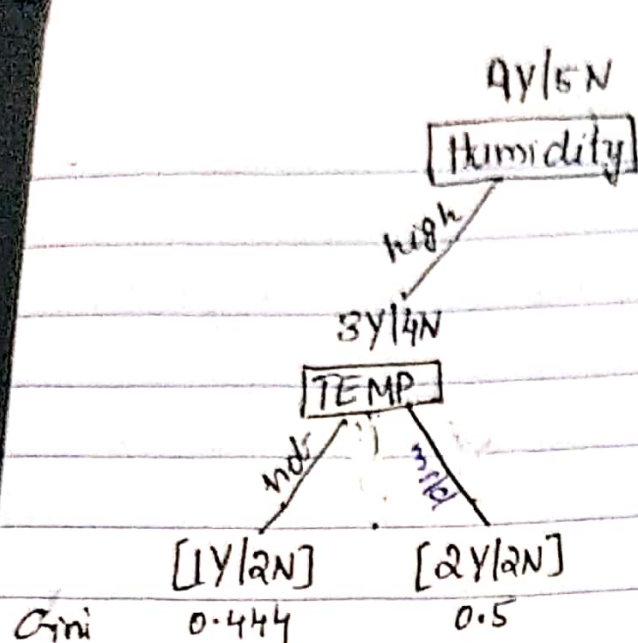 9Y/5N
Humidity
high
3Y/4N
TEMP
hot mild
[1Y/2N] [2Y/2N]
Gini 0.444 0.5